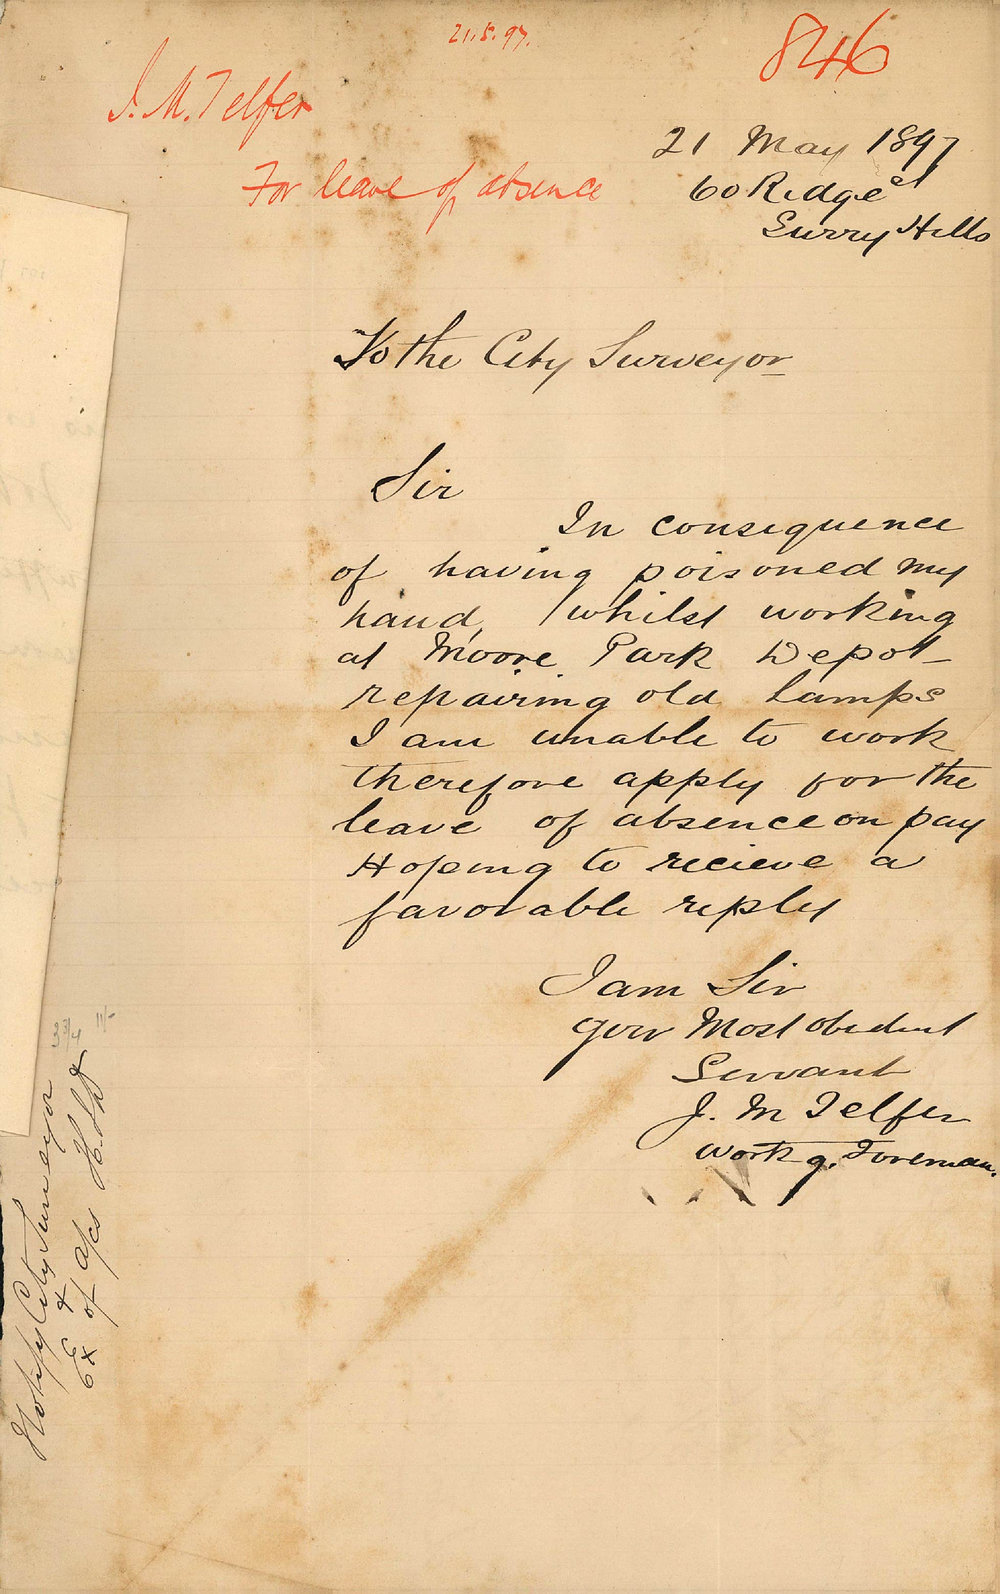 21.5.97.
846
J. M. Telfer
For leave of absence
21 May 1897
60 Ridge st
Surry Hills
To the City Surveyor
Sir
In consequence
of having poisoned my
hand, whilst working
at Moore Park Depot
repairing old Lamps
I am unable to work
therefore apply for the
leave of absence on pay
Hoping to recieve a
favorable reply
I am Sir
Your Most obedient
Servant
J. M Telfer
Work g. Foreman.
Notify City Surveyor
&
Ex of a/cs
3 3/4 11/-